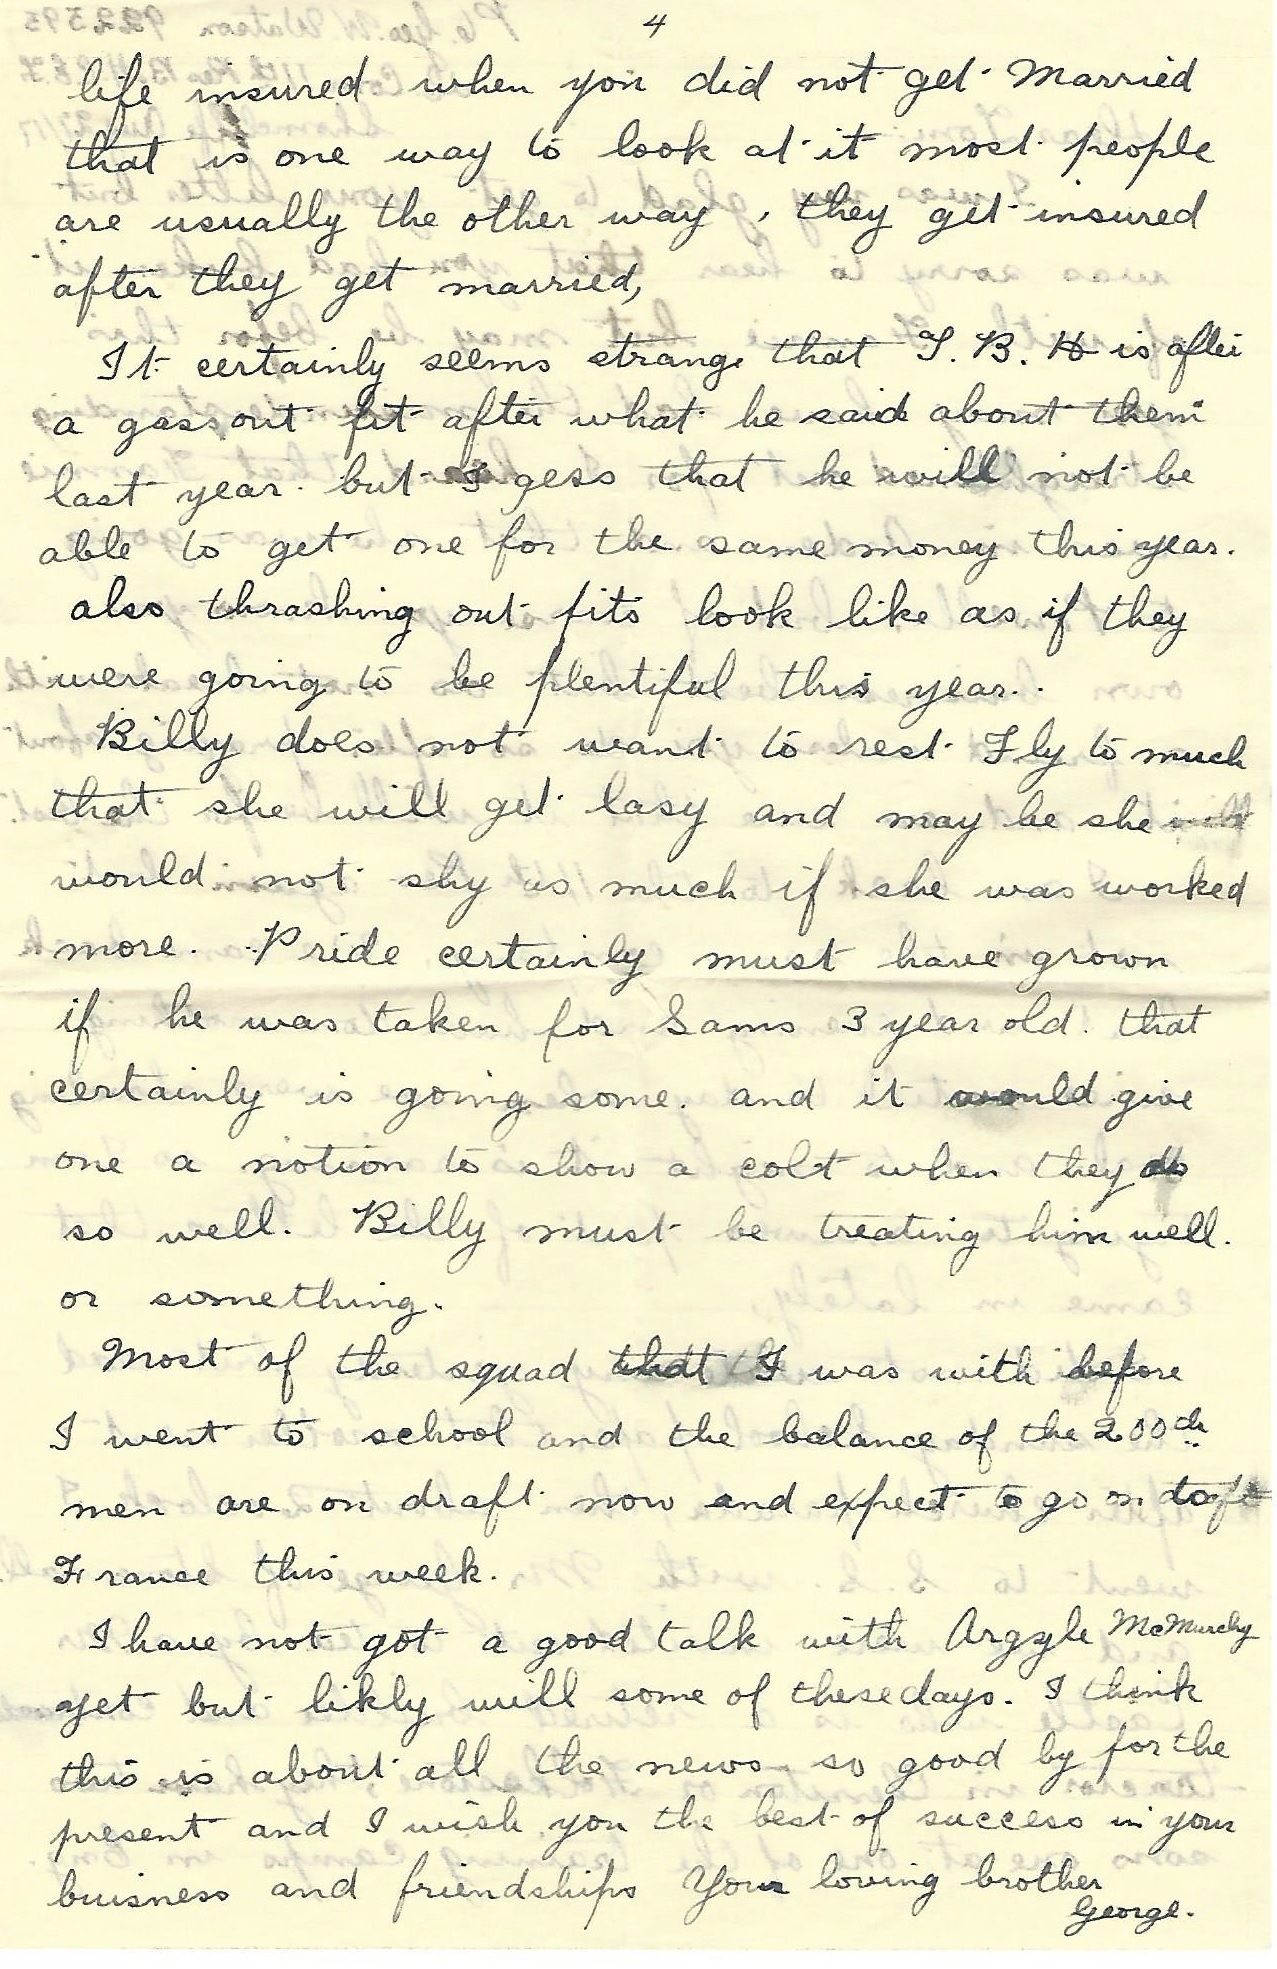 4
life insured when you did not get Married
that is one way to look at it most people
are usually the other way, they get insured
after they get married,
It certainly seems strange that T. B. H is after
a gas out fit after what he said about them
last year. but I gess that he will not be
able to get one for the same money this year.
also thrashing out fits look like as if they
were going to be plentiful this year.
Billy does not want to rest Fly to much
that she will get lasy and may be she
would not shy as much if she was worked
more. Pride certainly must have grown
if he was taken for Sams 3 year old. that
certainly is going some. and it would give
one a notion to show a colt when they do
so well. Billy must be treating him well.
or something.
Most of the squad that I was with before
I went to school and the balance of the 200th
men are on draft now and expect to go on
France this week.
I have not got a good talk with Argyle McMurchy
yet but likly will some of these days. I think
this is about all the news so good by for the
present and I wish you the best of success in your
buisness and friendships Your loving brother
George.